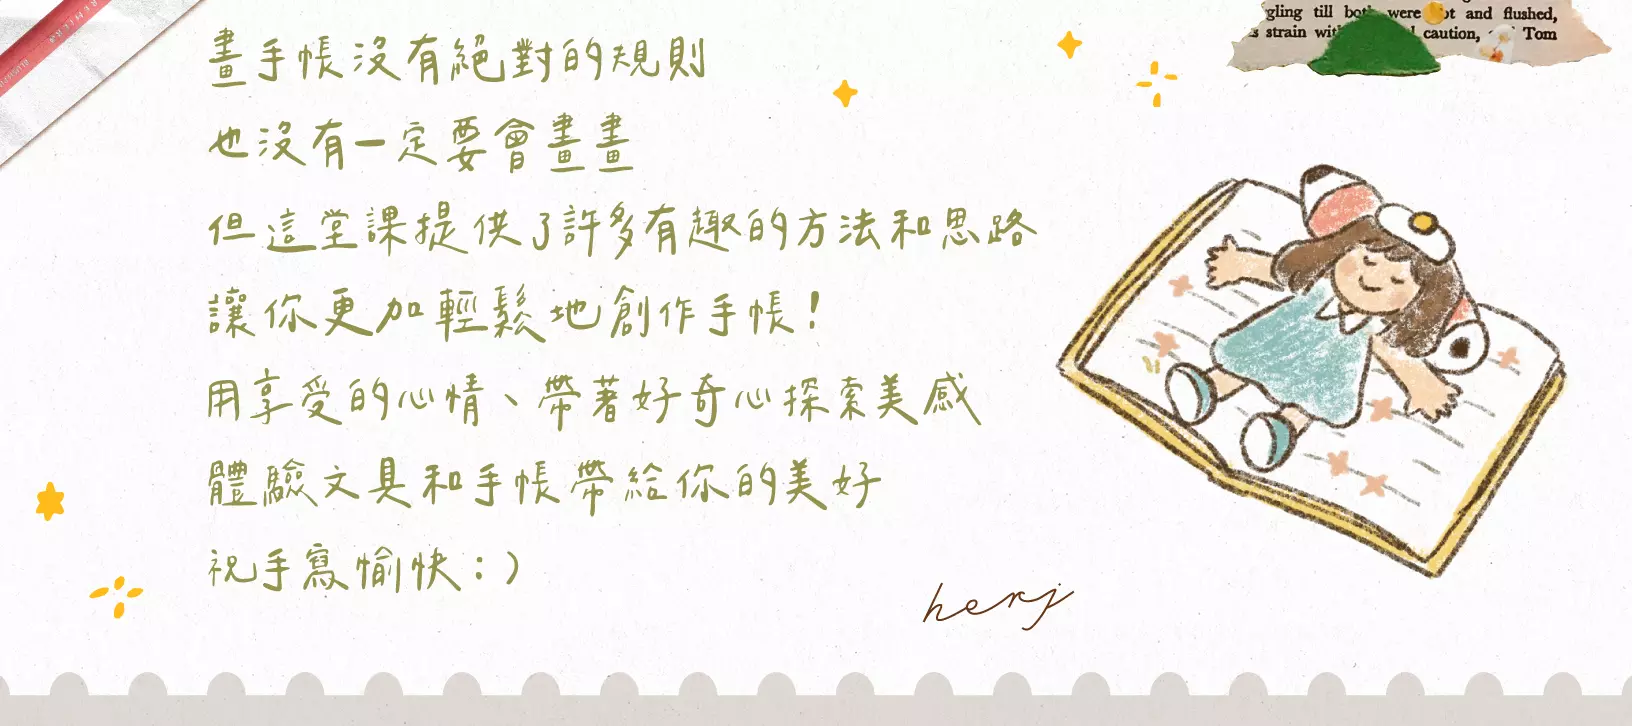 gling till both were hot and flushed,
strain caution, Tom
畫手帳沒有絕對的規則
也沒有一定要會畫畫
但這堂課提供了許多有趣的方法和思路
讓你更加輕鬆地創作手帳！
用享受的心情、帶著好奇心探索美感
體驗文具和手帳帶給你的美好
祝手寫愉快：）
herj